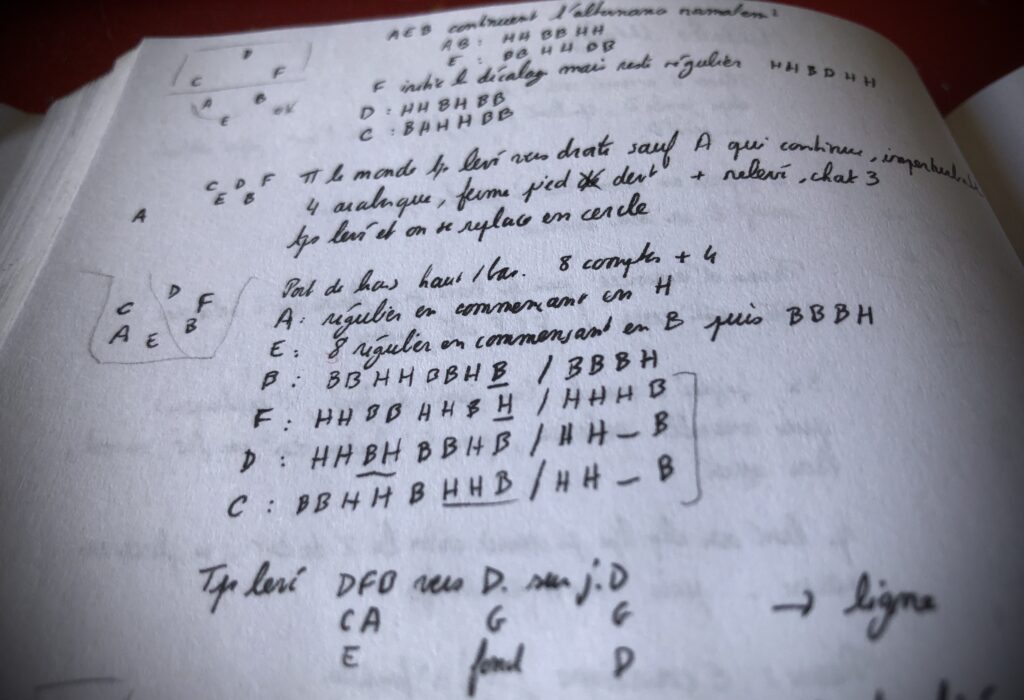 AEB continuent l'alternance normalemt
D
AB : HHBBHH
C F
E : BBHHBB
A B
F initie le décalage mais reste régulier HHBBHH
E ok
D : HHBHBB
C : BAHHBB
C D F Tt le monde tps levé vers droite sauf A qui continue,
E B
A 4 arabesque, ferme pied devt + relevé, chat 3
tps levé et on se replace en cercle
Port de bras haut / bas. 8 comptes + 4
D
C F A : régulier en commençant en H
A E B E : 8 régulier en commençant en B puis BBBH
B : BBHHBBHB / BBBH
F : HHBBHHBH / HHHB
D : HHBHBBHB / HH – B
C : BBHHBHHB / HH – B
Tps levé DFB vers D. sur j. D → ligne
CA G G
E fond D